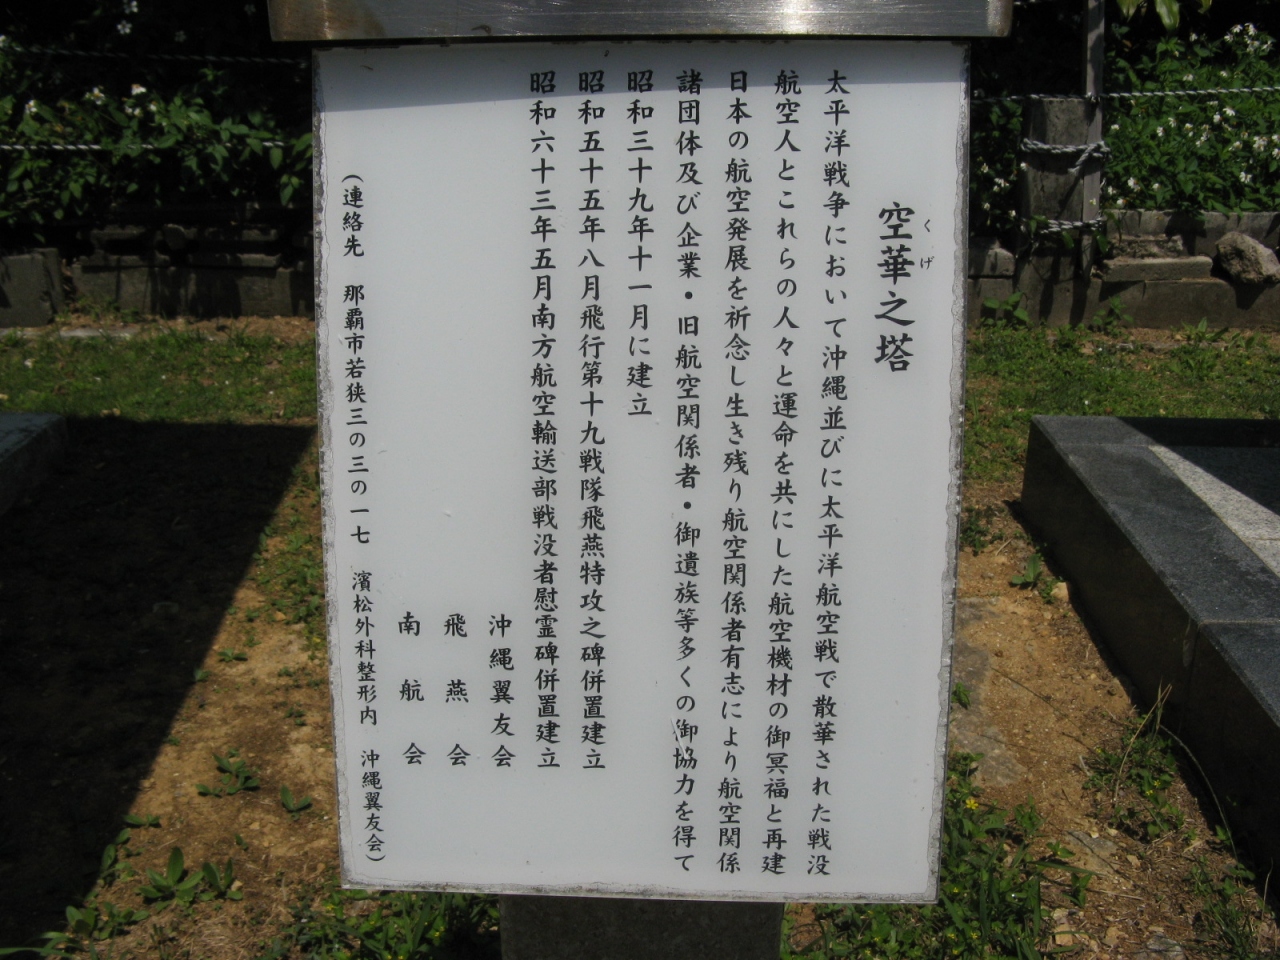 空華之塔
くげ
太平洋戦争において沖縄並びに太平洋航空戦で散華された戦没
航空人とこれらの人々と運命を共にした航空機材の御冥福と再建
日本の航空発展を祈念し生き残り航空関係者有志により航空関係
諸団体及び企業・旧航空関係者・御遺族等多くの御協力を得て
昭和三十九年十一月に建立
昭和五十五年八月飛行第十九戦隊飛燕特攻之碑併置建立
昭和六十三年五月南方航空輸送部戦没者慰霊碑併置建立
沖縄翼友会
飛燕会
南航会
(連絡先 那覇市若狭三の三の一七 濱松外科整形内 沖縄翼友会)